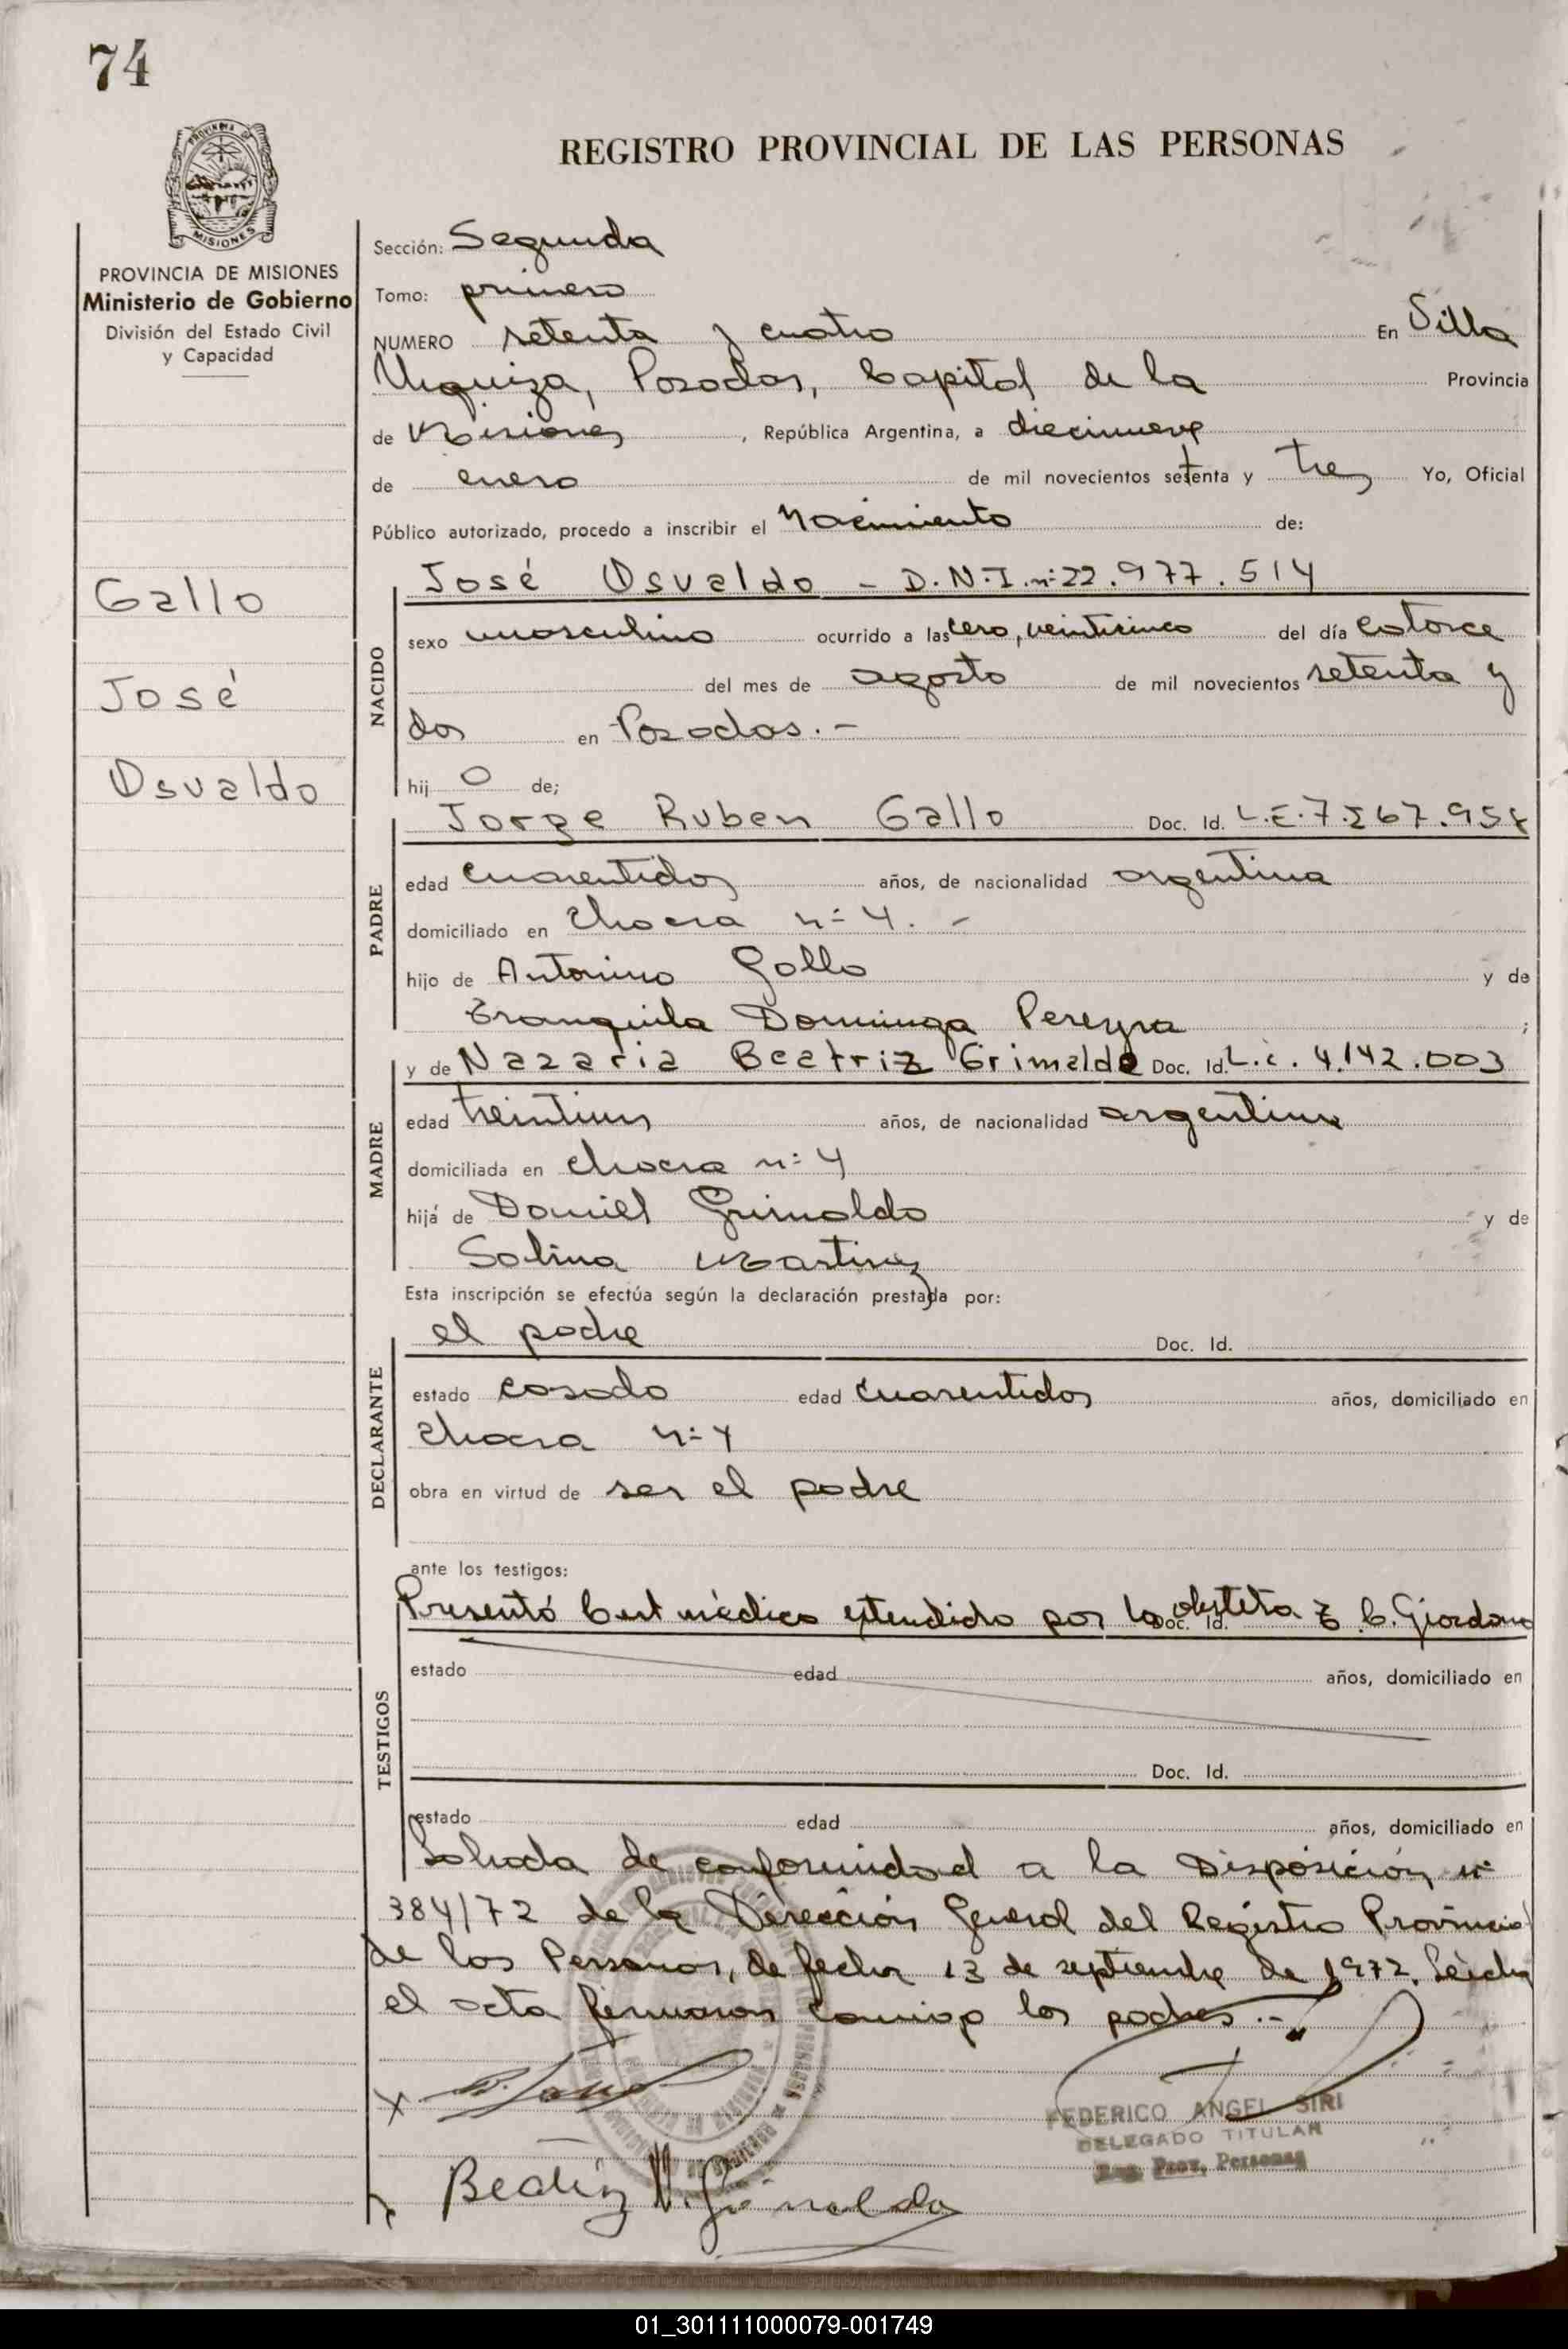 74
REGISTRO PROVINCIAL DE LAS PERSONAS
PROVINCIA DE
MISIONES
PROVINCIA DE MISIONES
Ministerio de Gobierno
División del Estado Civil
y Capacidad
Gallo
José
Osvaldo
Sección: Segunda
Tomo: primero
NUMERO setenta y cuatro En Villa
Urquiza, Posadas, Capital de la Provincia
de Misiones, República Argentina, a diecinueve
de enero de mil novecientos setenta y tres Yo, Oficial
Público autorizado, procedo a inscribir el Nacimiento de:
NACIDO
José Osvaldo - D.N.I. nº 22.977.514
sexo masculino ocurrido a las cero, veinticinco del día catorce
del mes de agosto de mil novecientos setenta y
dos en Posadas.-
hij o de;
PADRE
Jorge Ruben Gallo Doc. Id. L.E. 7.
edad cuarentidos años, de nacionalidad argentina
domiciliado en Chacra nº 4. -
hijo de Antonino Gallo y de
Tranquila Dominga Pereyra ;
MADRE
y de Nazaria Beatriz Grimaldo Doc. Id. L.c. 4.142.003
edad treintiun años, de nacionalidad argentina
domiciliada en Chacra nº 4
hija de Daniel Grimaldo y de
Salina Martinez
Esta inscripción se efectúa según la declaración prestada por:
DECLARANTE
el padre Doc. Id.
estado casado edad cuarentidos años, domiciliado en
Chacra nº 4
obra en virtud de ser el padre
ante los testigos:
TESTIGOS
Presentó Cert médico extendido por la obstetra C. Giordano Doc. Id.
estado edad años, domiciliado en
Doc. Id.
estado edad años, domiciliado en
Labrada de conformidad a la Disposición nº
384/72 de la Dirección General del Registro Provincial
de las Personas, de fecha 13 de septiembre de 1972. Leída
el acta firmaron conmigo los padres.-
X
FEDERICO ANGEL SIRI
DELEGADO TITULAR
Reg. Prov. Personas
Beatriz N. Grimaldo
01_301111000079-001749